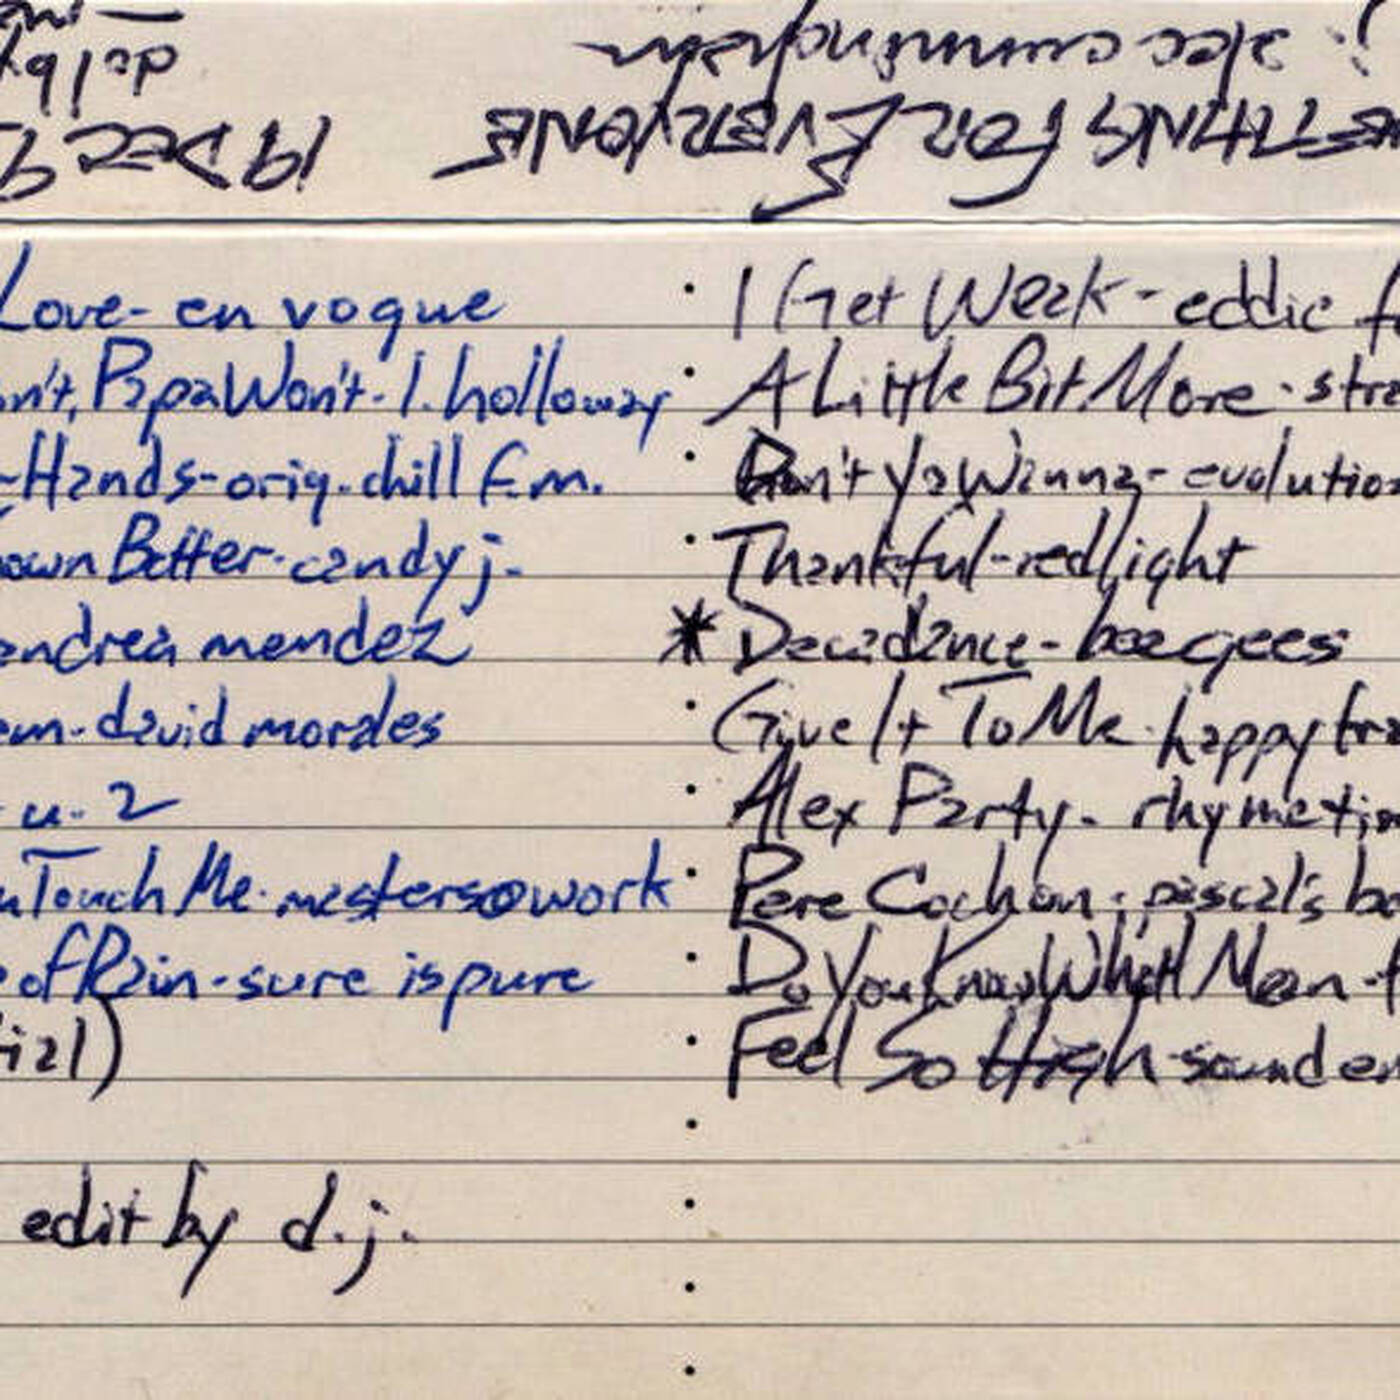 d.j. alec cunningham
SOMETHING FOR EVERYONE
19 DEC 9
Love - en vogue
on't, Papa Won't - l. holloway
Hands - orig. chill f.m.
own Better - candy j.
andrea mendez
em - david morales
- u. 2
uTouch Me - masters@work
of Rain - sure is pure
tial)
edit by d.j.
I Get Weak - eddie f
A Little Bit More - stra
Don't Ya Wanna - evolution
Thankful - redlight
* Decadance - bee gees
Give It To Me - happy tra
Alex Party - rhymetim
Pere Cochon - pascal's bo
Do You Know What I Mean - t
Feel So High - sound en